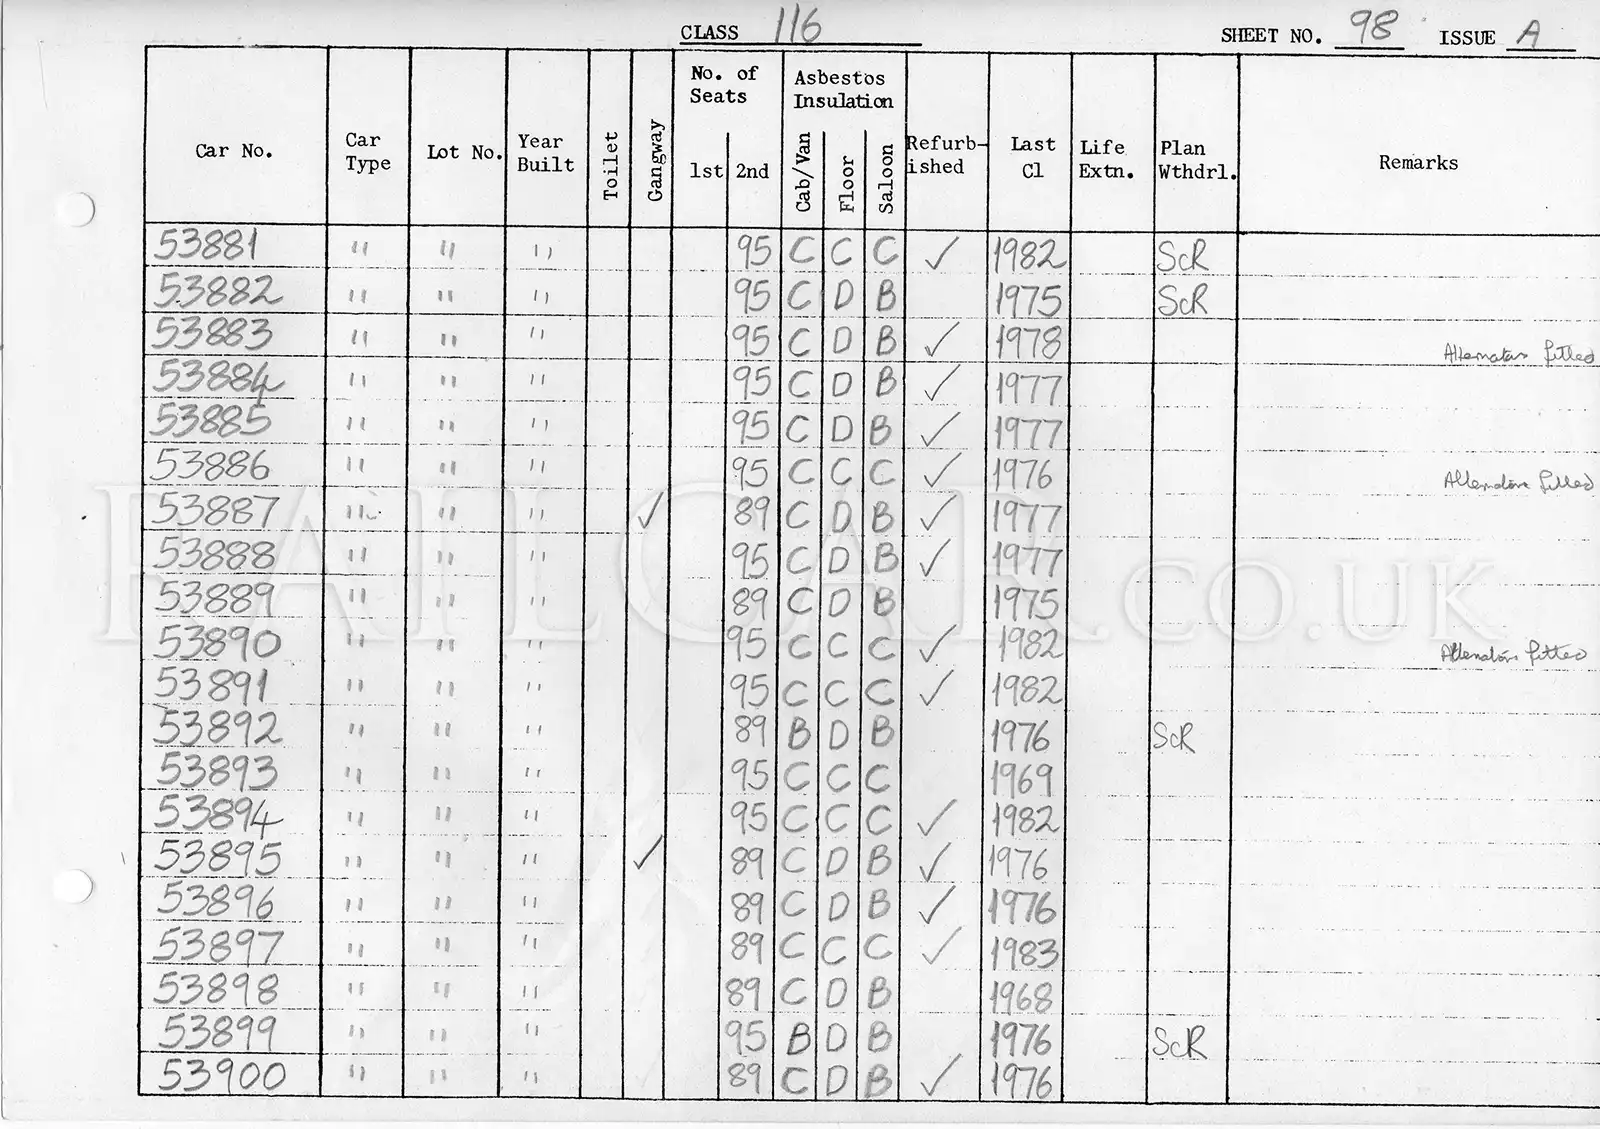 CLASS 116 SHEET NO. 98 ISSUE A
Car No. Car Type Lot No. Year Built Toilet Gangway No. of Seats 1st 2nd Asbestos Insulation Cab/Van Floor Saloon Refurb-ished Last Cl Life Extn. Plan Wthdrl. Remarks
53881 " " " 95 C C C ✓ 1982 ScR
53882 " " " 95 C D B 1975 ScR
53883 " " " 95 C D B ✓ 1978 Alternators fitted
53884 " " " 95 C D B ✓ 1977
53885 " " " 95 C D B ✓ 1977
53886 " " " 95 C C C ✓ 1976 Alternators fitted
53887 " " " ✓ 89 C D B ✓ 1977
53888 " " " 95 C D B ✓ 1977
53889 " " " 89 C D B 1975
53890 " " " 95 C C C ✓ 1982 Alternators fitted
53891 " " " 95 C C C ✓ 1982
53892 " " " 89 B D B 1976 ScR
53893 " " " 95 C C C 1969
53894 " " " 95 C C C ✓ 1982
53895 " " " ✓ 89 C D B ✓ 1976
53896 " " " 89 C D B ✓ 1976
53897 " " " 89 C C C ✓ 1983
53898 " " " 89 C D B 1968
53899 " " " 95 B D B 1976 ScR
53900 " " " 89 C D B ✓ 1976
RAILCAR.CO.UK